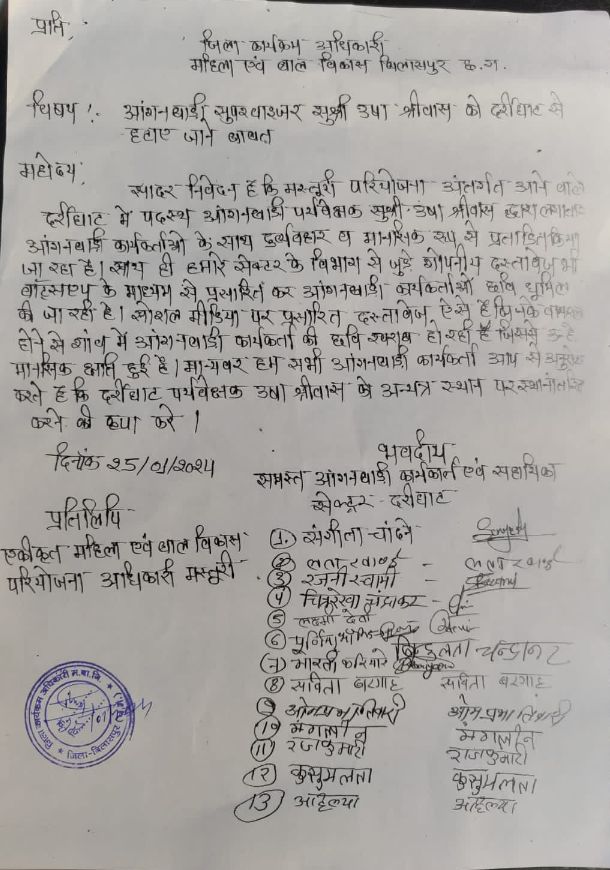 प्रति,
जिला कार्यक्रम अधिकारी
महिला एवं बाल विकास बिलासपुर छ.ग.
विषय :- आंगनबाडी सुपरवाइजर सुश्री उषा श्रीवास को दर्रीघाट से
हटाए जाने बाबत
महोदय,
सादर निवेदन है कि मस्तूरी परियोजना अंतर्गत आने वाले
दर्रीघाट मे पदस्थ आंगनबाडी पर्यवेक्षक सुश्री उषा श्रीवास द्वारा लगातार
आंगनबाडी कार्यकर्ताओ के साथ दुर्व्यवहार व मानसिक रूप से प्रताडित किया
जा रहा है। साथ ही हमारे सेक्टर के विभाग से जुडे गोपनीय दस्तावेज भी
वाट्सएप के माध्यम से प्रसारित कर आंगनबाडी कार्यकर्ताओ छवि धूमिल
की जा रही है। सोशल मीडिया पर प्रसारित दस्तावेज ऐसे है जिनके वायरल
होने से गांव में आंगनबाडी कार्यकर्ता की छवि खराब हो रही है जिससे उन्हे
मानसिक क्षति हुई है। मान्यवर हम सभी आंगनबाडी कार्यकर्ता आप से अनुरोध
करते है कि दर्रीघाट पर्यवेक्षक उषा श्रीवास को अन्यत्र स्थान पर स्थानांतरित
करने की कृपा करे।
दिनांक 25/01/2024
भवदीय
समस्त आंगनबाडी कार्यकर्ता एवं सहायिका
सेक्टर - दर्रीघाट
प्रतिलिपि
एकीकृत महिला एवं बाल विकास
परियोजना अधिकारी मस्तूरी
1. संगीता चांदने
2 लता रवार्ड - लता रवार्ड
3 रजनी स्वामी -
4 चित्ररेखा चंद्राकर -
5 लक्ष्मी देवी
6 पूर्णिमा
चन्द्राकर
7 भारती करियारे
8 सविता बरगाह सविता बरगाह
9 ओमप्रभा तिवारी ओमप्रभा तिवारी
10 मंगलीन मंगलीन
11 राजकुमारी राजकुमारी
12 कुसुमलता कुसुमलता
13 अहिल्या अहिल्या
जिला कार्यक्रम अधिकारी म.बा.वि.
जिला-बिलासपुर